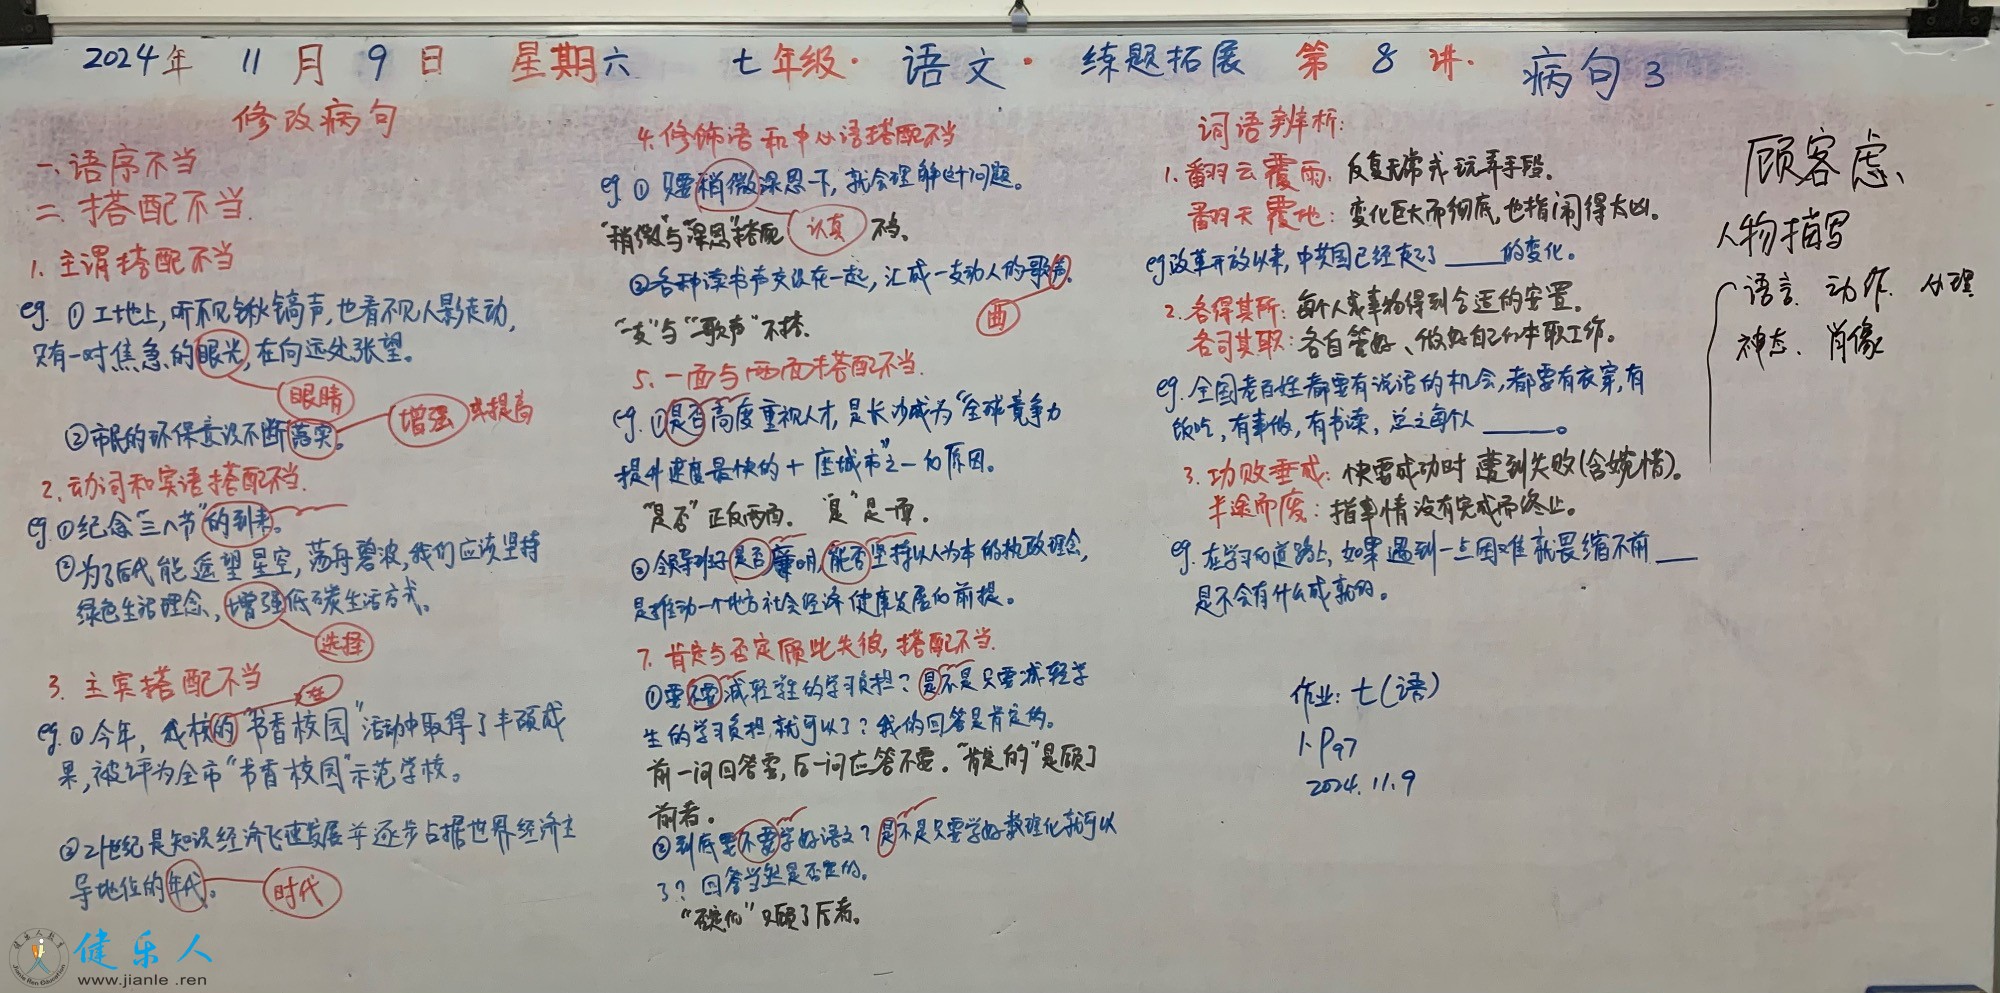 2024年 11月9日 星期六 七年级·语文·练题拓展 第8讲·病句3
修改病句
一、语序不当
二、搭配不当.
1. 主谓搭配不当
eg. ①工地上,听不见锹镐声,也看不见人影走动,
只有一对焦急的眼光,在向远处张望。
眼睛
②市民的环保意识不断落实。
增强 或提高
2.动词和宾语搭配不当.
eg.①纪念"三八节"的到来。
②为了后代能遥望星空,荡舟碧波,我们应该坚持
绿色生活理念,增强低碳生活方式。
选择
3. 主宾搭配不当
在
eg.①今年,我校的"书香校园"活动中取得了丰硕成
果,被评为全市"书香校园"示范学校。
②21世纪是知识经济飞速发展并逐步占据世界经济主
导地位的年代。
时代
4.修饰语和中心语搭配不当
eg.①只要稍微深思一下,就会理解这个问题。
"稍微"与"深思"搭配不当、
认真
②各种读书声交汇在一起,汇成一支动人的歌声。
曲
"一支"与"歌声"不搭.
5.一面与两面搭配不当.
eg.①是否高度重视人才,是长沙成为"全球竞争力
提升速度最快的十座城市"之一的原因。
"是否"正反两面. "是"是一面.
②领导班子是否廉明,能否坚持以人为本的执政理念,
是推动一个地方社会经济健康发展的前提。
7.肯定与否定顾此失彼,搭配不当.
①要不要减轻学生的学习负担?是不是只要减轻学
生的学习负担,就可以了?我的回答是肯定的。
前一问回答要,后一问应答不要。"肯定的"是顾了
前者。
②到底要不要学好语文?是不是只要学好数理化就可以
了?回答当然是否定的。
"否定的"只顾了后者。
词语辨析:
1.翻云覆雨: 反复无常或玩弄手段。
翻天覆地: 变化巨大而彻底,也指闹得太凶。
eg改革开放以来,中国已经走了____的变化。
2.各得其所:每个人或事物得到合适的安置。
各司其职:各自管好、做好自己的本职工作。
eg.全国老百姓都要有说话的机会,都要有衣穿,有
饭吃,有事做,有书读,总之每个人____。
3.功败垂成:快要成功时遭到失败(含惋惜)。
半途而废:指事情没有完成而终止。
eg.在学习的道路上,如果遇到一点困难就畏缩不前__
是不会有什么成就的。
作业:七(语)
1.P97
2024.11.9
顾客虑、
人物描写
语言、动作、心理
神态、肖像
健乐人
www.jianle.ren